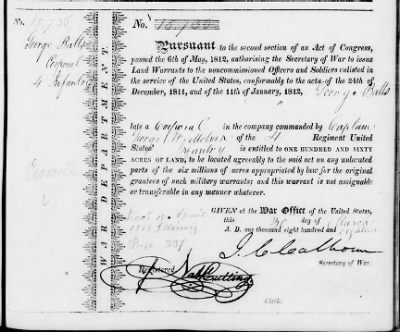 No. 15,736
George Balls
Corporal
4 Infantry
WAR DEPARTMENT.
No. 15,736
Pursuant to the second section of an Act of Congress,
passed the 6th of May, 1812, authorising the Secretary of War to issue
Land Warrants to the noncommissioned Officers and Soldiers enlisted in
the service of the United States, conformably to the acts of the 24th of
December, 1811, and of the 11th of January, 1812, George Balls
late a Corporal in the company commanded by Captain
George of the 4 Regiment United
States' Infantry is entitled to ONE HUNDRED AND SIXTY
ACRES OF LAND, to be located agreeably to the said act on any unlocated
parts of the six millions of acres appropriated by law for the original
grantees of such military warrants; and this warrant is not assignable
or transferable in any manner whatever.
GIVEN at the War Office of the United States,
this day of March
A. D. one thousand eight hundred and
J. C. Calhoun
Secretary of War.
Registered
Clerk.